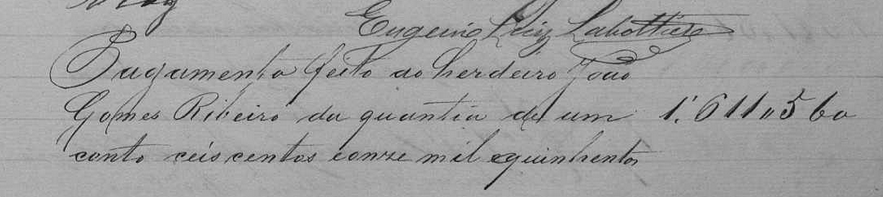 Eugenio Luiz Labottiere
Pagamento feito ao herdeiro João
Gomes Ribeiro da quantia de um 1:611"560
conto ceiscentos e onze mil e quinhentos